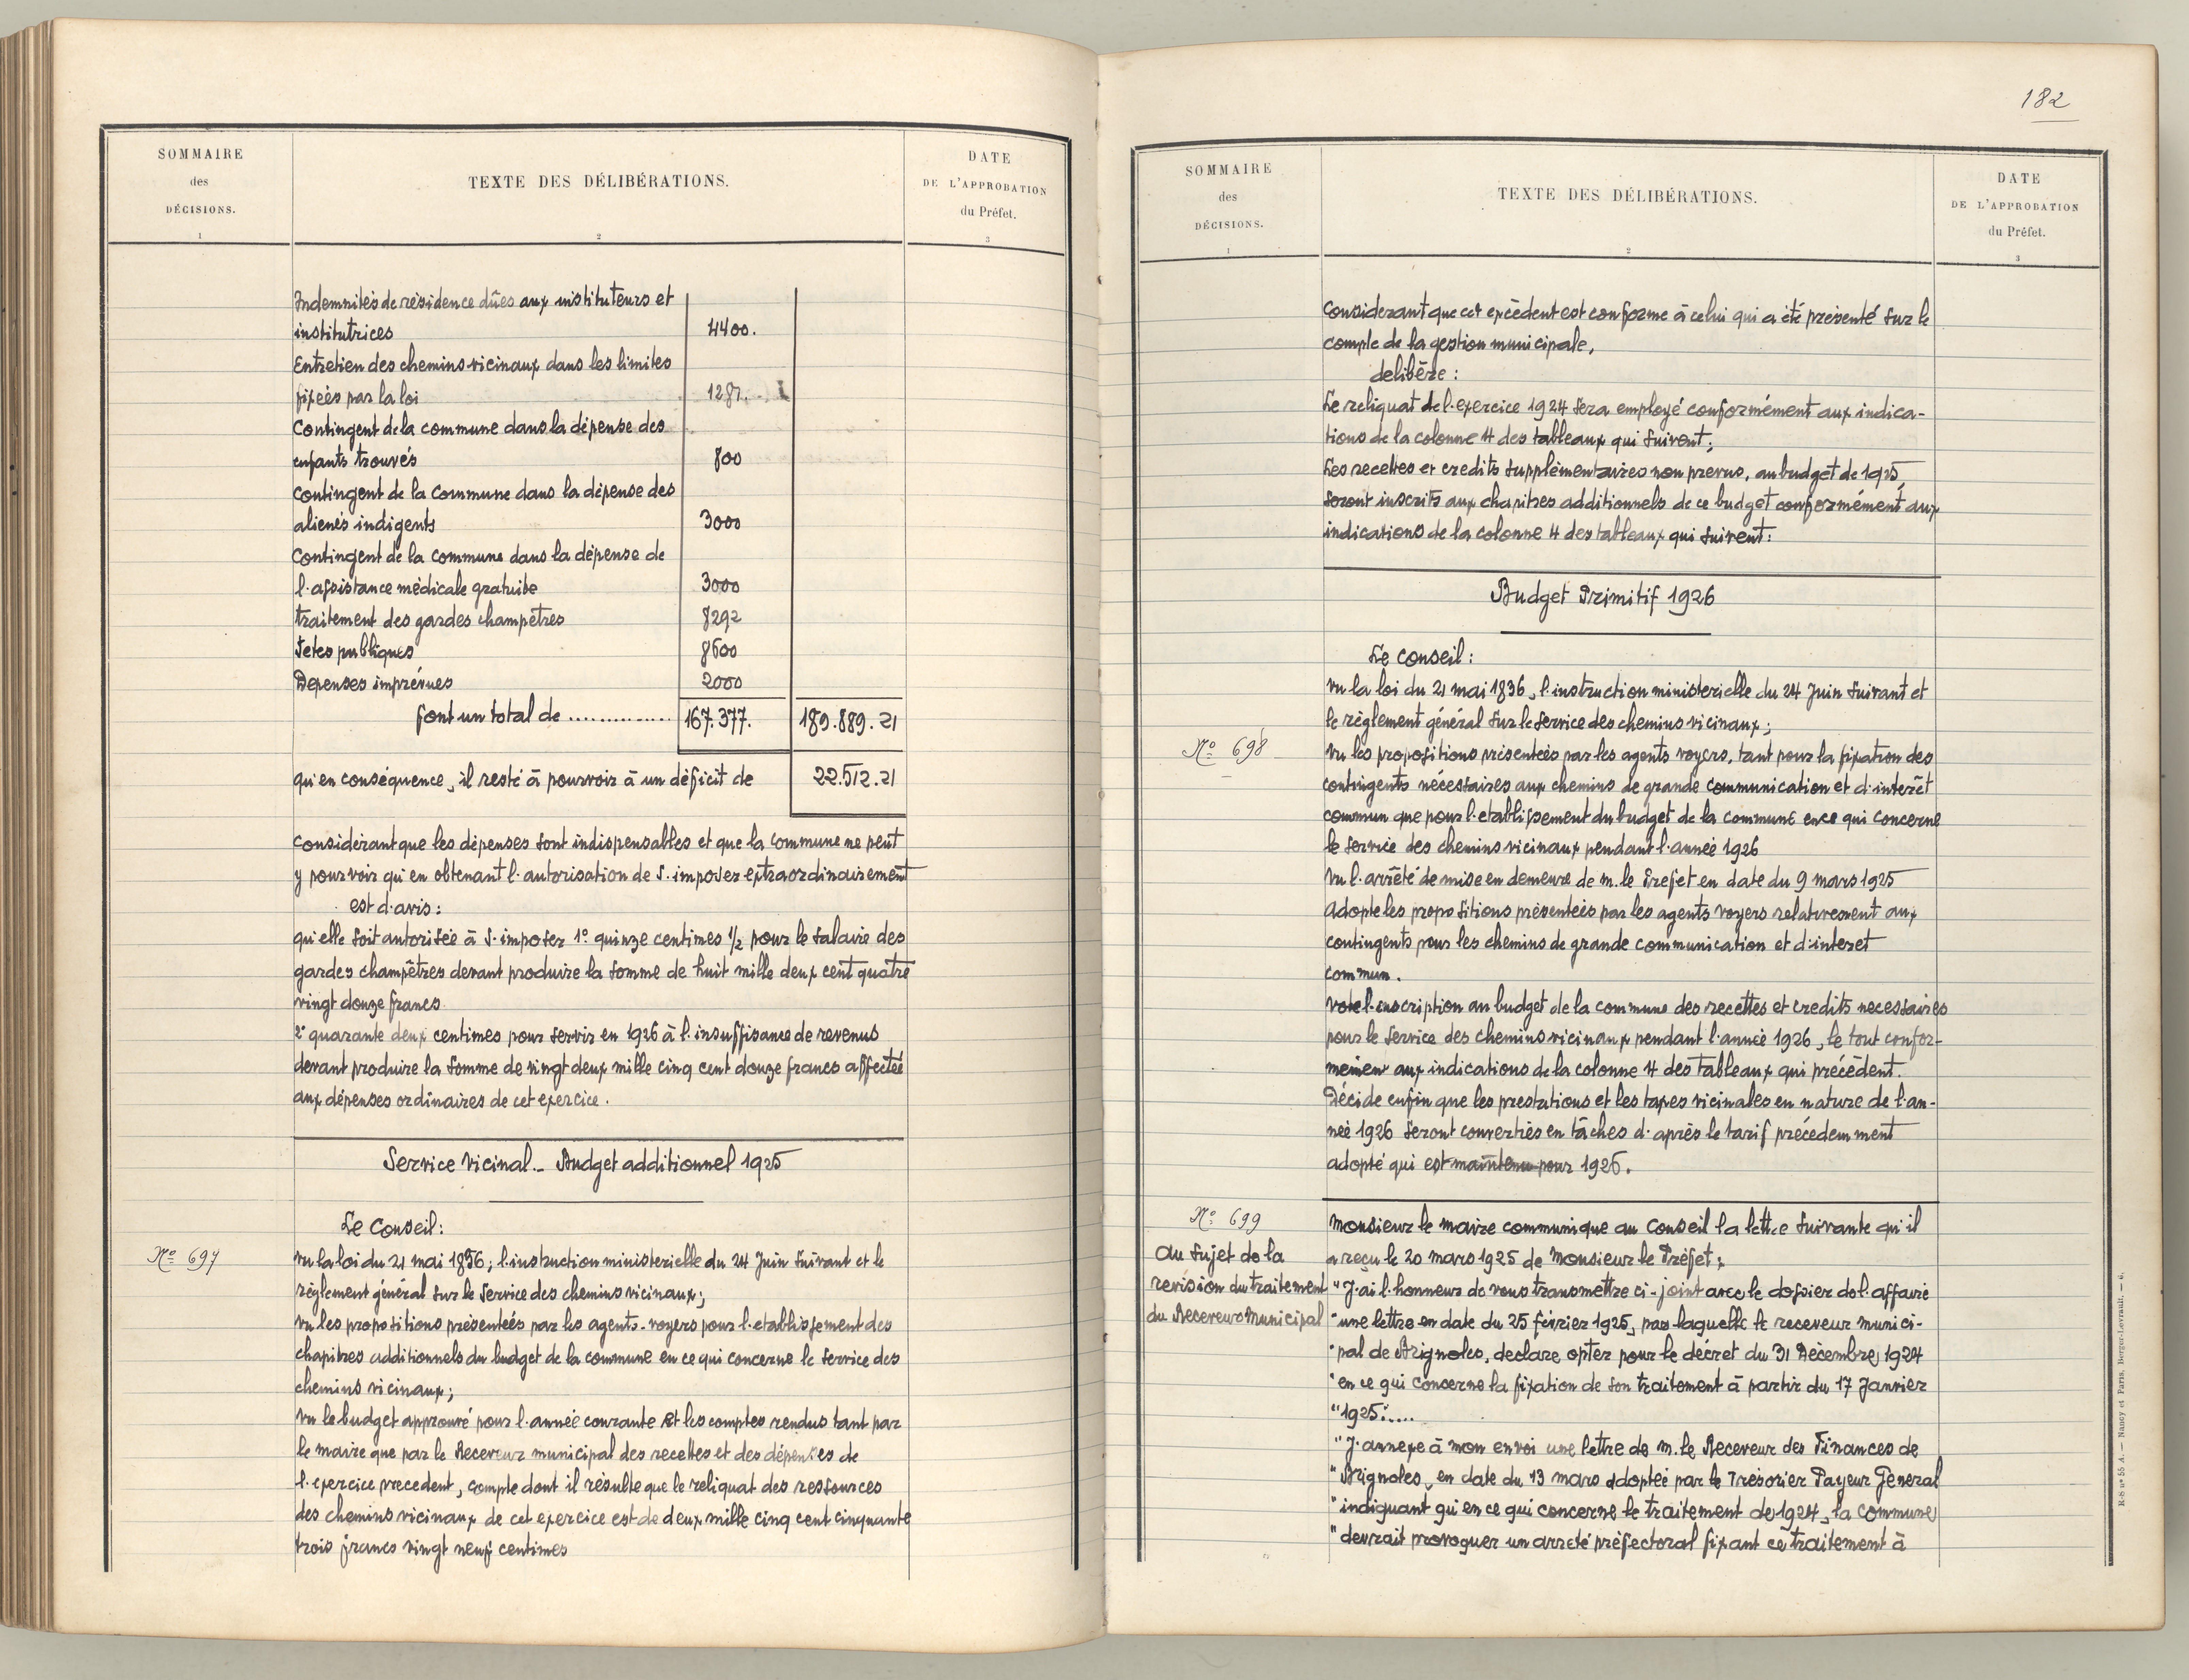 SOMMAIRE
des
DÉCISIONS.
1
TEXTE DES DÉLIBÉRATIONS.
2
DATE
DE L'APPROBATION
du Préfet.
3
Indemnités de résidence dûes aux instituteurs et
institutrices 4400.
Entretien des chemins vicinaux dans les limites
fixées par la loi 1281.
Contingent de la commune dans la dépense des
enfants trouvés 800
Contingent de la commune dans la dépense des
alienés indigents 3000
Contingent de la commune dans la dépense de
l'assistance médicale gratuite 3000
traitement des gardes champêtres 8292
Fetes publiques 8600
Depenses imprévues 2000
font un total de .............. 167.377. 189.889.21
qu'en conséquence, il resté à pourvoir à un déficit de 22.512.21
considérant que les dépenses sont indispensables et que la commune ne peut
y pourvoir qu'en obtenant l'autorisation de s'imposer extraordinairement
est d'avis :
qu'elle soit autorisée à s'imposer 1° quinze centimes 1/2 pour le salaire des
gardes champêtres devant produire la somme de huit mille deux cent quatre
vingt douze francs
2° quarante deux centimes pour servir en 1926 à l'insuffisance de revenus
devant produire la somme de vingt deux mille cinq cent douze francs affectée
aux dépenses ordinaires de cet exercice.
Service Vicinal._ Budget additionnel 1925
Le Conseil :
N° 697
vu la loi du 21 mai 1836; l'instruction ministerielle du 24 Juin suivant et le
réglement général sur le service des chemins vicinaux;
vu les propositions présentées par les agents-voyers pour l'etablissement des
chapitres additionnels du budget de la commune en ce qui concerne le service des
chemins vicinaux;
vu le budget approuvé pour l'année courante et les comptes rendus tant par
le maire que par le Receveur municipal des recettes et des dépenses de
l'exercice precedent, compte dont il résulte que le reliquat des ressources
des chemins vicinaux de cet exercice est de deux mille cinq cent cinquante
trois francs vingt neuf centimes
182
SOMMAIRE
des
DÉCISIONS.
1
TEXTE DES DÉLIBÉRATIONS.
2
DATE
DE L'APPROBATION
du Préfet.
3
Considerant que cet excèdent est conforme à celui qui a été présenté sur le
compte de la gestion municipale,
delibère :
Le reliquat de l'exercice 1924 sera employé conformément aux indica-
tions de la colonne 4 des tableaux qui suivent;
Les recettes et credits supplémentaires non prevus, au budget de 1925,
seront inscrits aux chapitres additionnels de ce budget conformément aux
indications de la colonne 4 des tableaux qui suivent :
Budget Primitif 1926
Le conseil :
vu la loi du 21 mai 1836, l'instruction ministerielle du 24 Juin suivant et
le règlement général sur le service des chemins vicinaux;
N° 698
vu les propositions présentées par les agents voyers, tant pour la fixation des
contingents nécessaires aux chemins de grande communication et d'interêt
commun que pour l'etablissement du budget de la commune en ce qui concerne
le service des chemins vicinaux pendant l'année 1926
vu l'arrêté de mise en demeure de m. le Prefet en date du 9 mars 1925
adopte les propositions présentées par les agents voyers relativement aux
contingents pour les chemins de grande communication et d'interet
commun.
vote l'inscription au budget de la commune des recettes et credits necessaires
pour le service des chemins vicinaux pendant l'année 1926, le tout confor-
mément aux indications de la colonne 4 des tableaux qui précédent.
Décide enfin que les prestations et les taxes vicinales en nature de l'an-
née 1926 seront converties en tâches d'après le tarif précédemment
adopté qui est maintenu pour 1926.
N° 699
au sujet de la
revision du traitement
du Receveur Municipal
monsieur le maire communique au conseil la lettre suivante qu'il
a reçu le 20 mars 1925 de Monsieur le Préfet :
" J'ai l'honneur de vous transmettre ci-joint avec le dossier de l'affaire
" une lettre en date du 25 février 1925, par laquelle le receveur munici-
" pal de Brignoles, declare opter pour le décret du 31 Décembre 1924
" en ce qui concerne la fixation de son traitement à partir du 17 Janvier
" 1925".....
" J'annexe à mon envoi une lettre de m. le Receveur des Finances de
" Brignoles, en date du 13 mars adoptée par le Trésorier Payeur Géneral
" indiquant qu'en ce qui concerne le traitement de 1924, la Commune
" devrait provoquer un arreté préfectoral fixant ce traitement à
R-8 n° 55 A. — Nancy et Paris, Berger-Levrault. — 6.